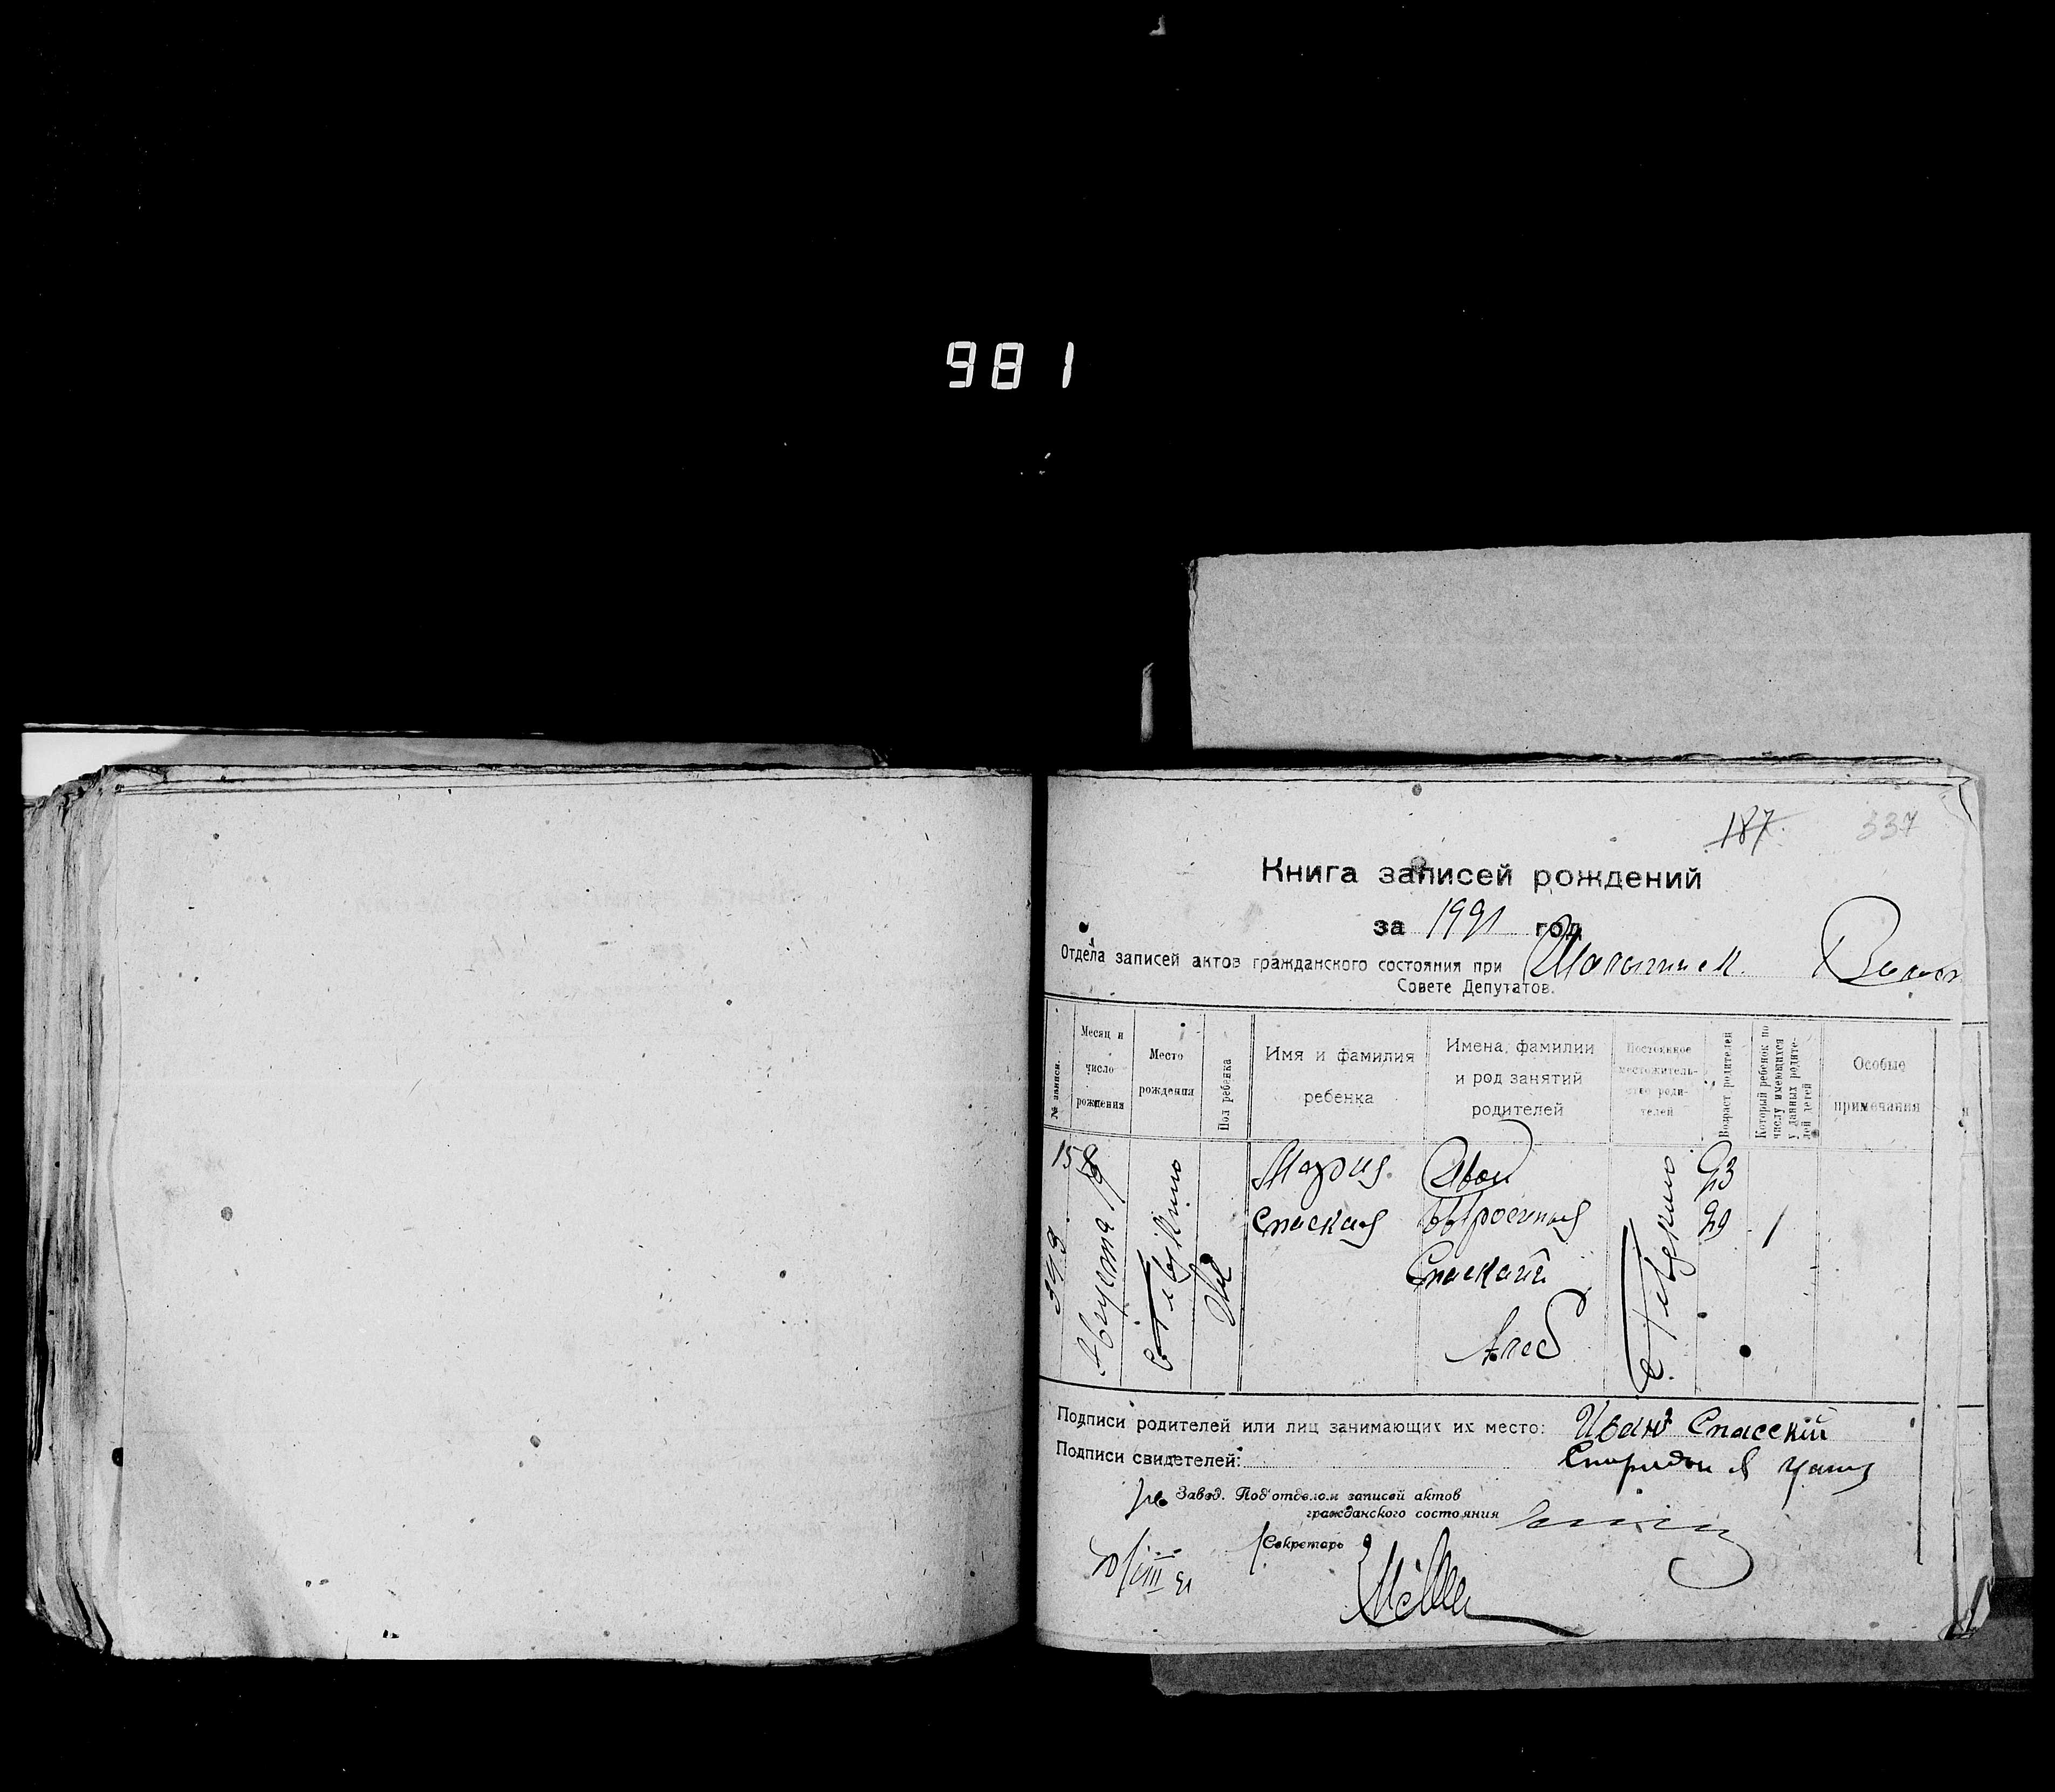 981
187. 337
Книга записей рождений
за 1921 год
Отдела записей актов гражданского состояния при
Совете Депутатов.
№ записи.
Месяц и число рождения
Место рождения
Пол ребенка
Имя и фамилия ребенка
Имена, фамилии и род занятий родителей
Постоянное местожительство родителей
Возраст родителей
Который ребенок по числу имеющихся у данных родителей детей
Особые примечания
158
Августа 19
Жен
Мария
Спаская
Иван
Спаский
23
20
1
Подписи родителей или лиц занимающих их место: Иванъ Спасскій
Подписи свидетелей: Спиридон
Завед. Под'отделом записей актов
гражданского состояния
Секретарь
20/VIII 21